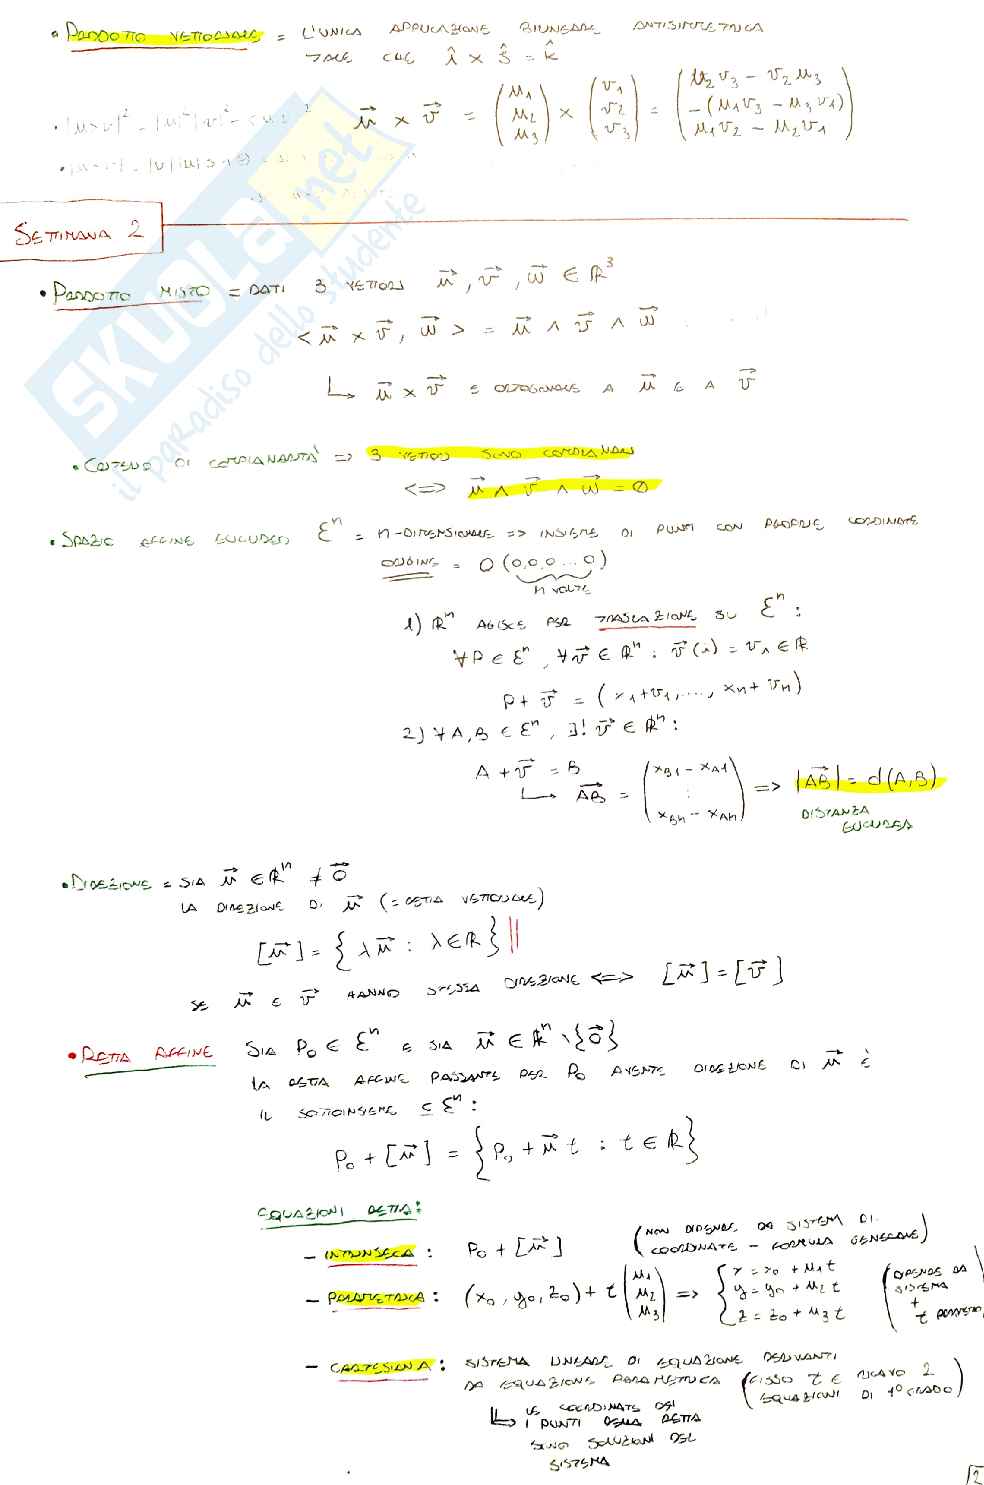 • PRODOTTO VETTORIALE = L'UNICA APPLICAZIONE BILINEARE ANTISIMMETRICA
TALE CHE î × ĵ = k̂
u⃗ × v⃗ = (u1 u2 u3) × (v1 v2 v3) = (u2v3 - v2u3, -(u1v3 - u3v1), u1v2 - u2v1)
SKUOLA.net
il paradiso dello studente
SETTIMANA 2
• PRODOTTO MISTO = DATI 3 VETTORI u⃗, v⃗, w⃗ ∈ ℝ³
< u⃗ × v⃗, w⃗ > = u⃗ ∧ v⃗ ∧ w⃗
↳ u⃗ × v⃗ È ORTOGONALE A u⃗ E A v⃗
• CRITERIO DI COMPLANARITÀ => 3 VETTORI SONO COMPLANARI
<=> u⃗ ∧ v⃗ ∧ w⃗ = 0
• SPAZIO AFFINE EUCLIDEO ℰⁿ = n-DIMENSIONALE => INSIEME DI PUNTI CON PROPRIE COORDINATE
ORIGINE = O (0,0,0...0)
n VOLTE
1) ℝⁿ AGISCE PER TRASLAZIONE SU ℰⁿ:
∀P ∈ ℰⁿ, ∀v⃗ ∈ ℝⁿ : v⃗(1) = v1 ∈ ℝ
P + v⃗ = (x1+v1,..., xn+vn)
2) ∀A,B ∈ ℰⁿ, ∃! v⃗ ∈ ℝⁿ:
A + v⃗ = B
↳ AB⃗ = (xB1 - xA1 ⋮ xBn - xAn) => |AB⃗| = d(A,B)
DISTANZA
EUCLIDEA
• DIREZIONE = SIA u⃗ ∈ ℝⁿ ≠ 0⃗
LA DIREZIONE DI u⃗ (= RETTA VETTORIALE)
[u⃗] = {λu⃗ : λ ∈ ℝ}
SE u⃗ E v⃗ HANNO STESSA DIREZIONE <=> [u⃗] = [v⃗]
• RETTA AFFINE SIA P0 ∈ ℰⁿ E SIA u⃗ ∈ ℝⁿ \ {0⃗}
LA RETTA AFFINE PASSANTE PER P0 AVENTE DIREZIONE DI u⃗ È
IL SOTTOINSIEME ⊆ ℰⁿ:
P0 + [u⃗] = {P0 + u⃗ t : t ∈ ℝ}
EQUAZIONI RETTA:
- INTRINSECA: P0 + [u⃗] (NON DIPENDE DA SISTEMA DI
COORDINATE - FORMULA GENERALE)
- PARAMETRICA: (x0, y0, z0) + t (u1 u2 u3) => { x = x0 + u1t
y = y0 + u2t
z = z0 + u3t
(DIPENDE DA
SISTEMA
+
t
- CARTESIANA: SISTEMA LINEARE DI EQUAZIONE DERIVANTI
DA EQUAZIONE PARAMETRICA (FISSO t E RICAVO 2
EQUAZIONI DI 1° GRADO)
↳ LE COORDINATE DEI
PUNTI DELLA RETTA
SONO SOLUZIONI DEL
SISTEMA
2